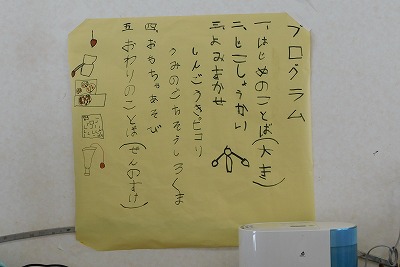 プログラム
一、はじめのことば(大き)
二、じこしょうかい
三、よみきかせ
しんごうきピコリ
うみのごちそうしろくま
四、おもちゃあそび
五、おわりのことば(ぜんのすけ)